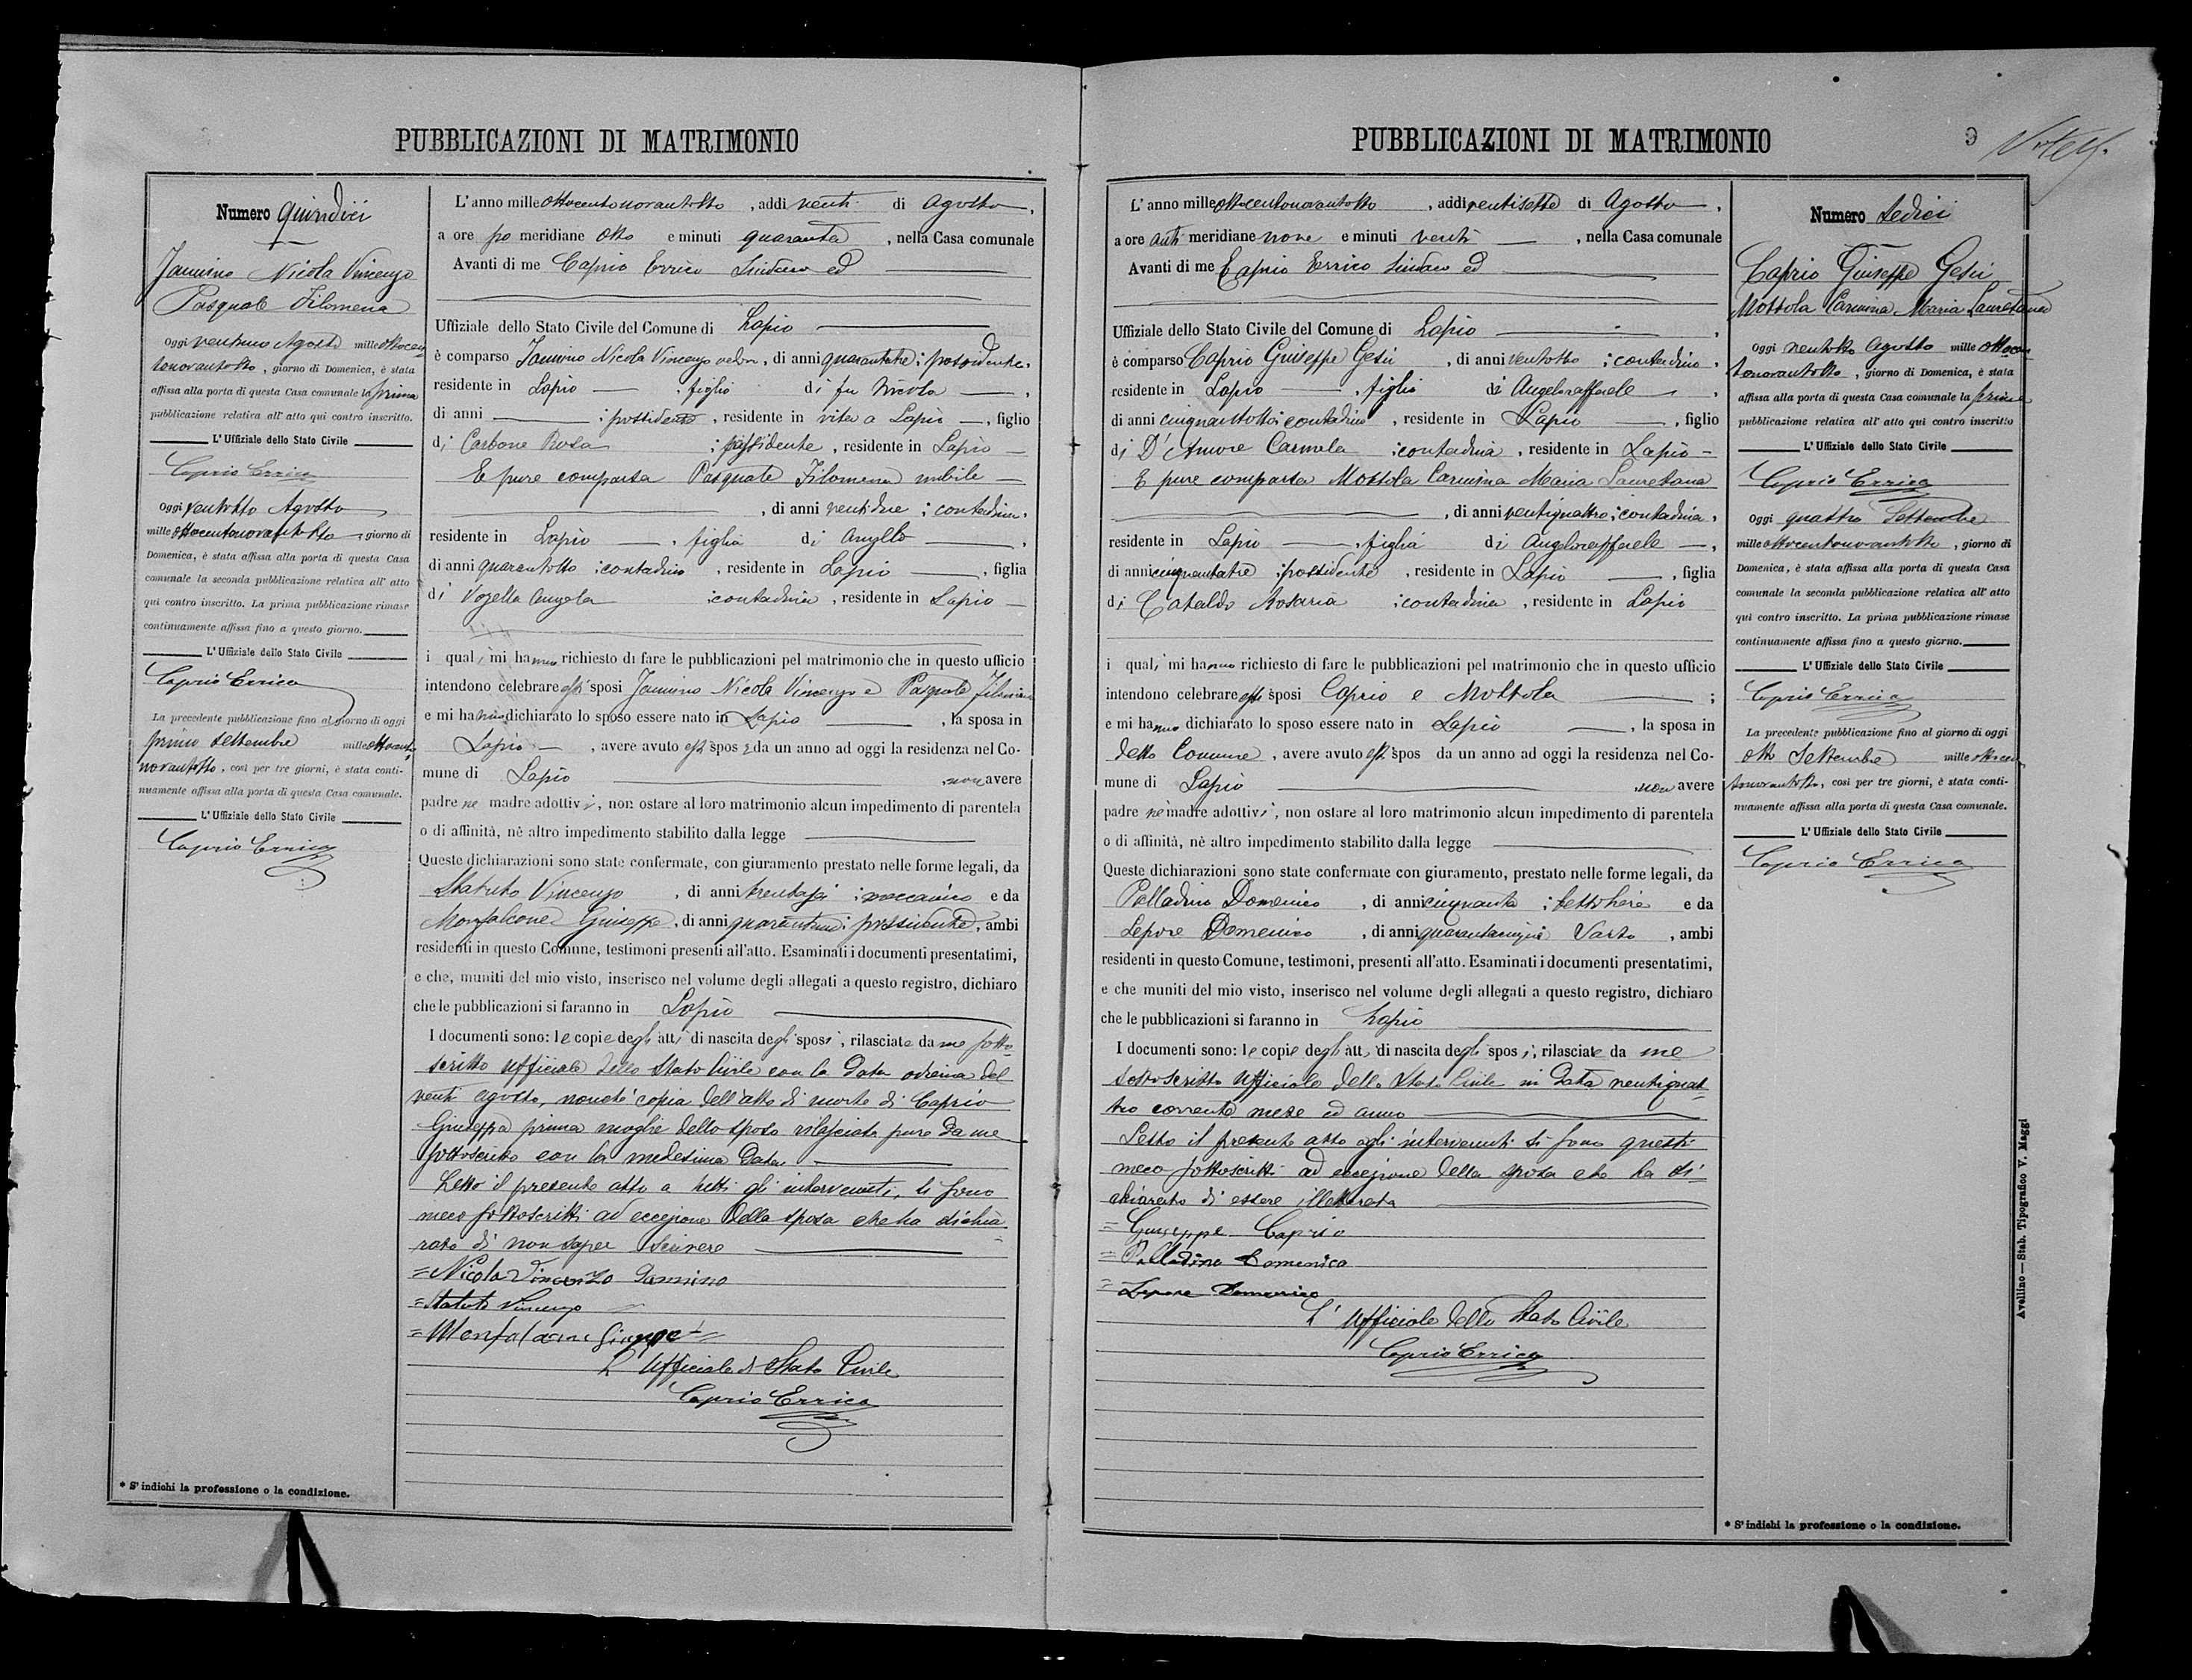 PUBBLICAZIONI DI MATRIMONIO
Numero quindici
Jannino Nicola Vincenzo
Pasquale Filomena
Oggi ventuno Agosto mille ottocen
tonovantotto, giorno di Domenica, è stata
affissa alla porta di questa Casa comunale la prima
pubblicazione relativa all' atto qui contro inscritto.
L' Uffiziale dello Stato Civile
Caprio Errico
Oggi ventotto Agosto
mille ottocentonovantotto, giorno di
Domenica, è stata affissa alla porta di questa Casa
comunale la seconda pubblicazione relativa all' atto
qui contro inscritto. La prima pubblicazione rimase
continuamente affissa fino a questo giorno.
L' Uffiziale dello Stato Civile
Caprio Errico
La precedente pubblicazione fino al giorno di oggi
primo Settembre mille ottocento
novantotto, così per tre giorni, è stata conti-
nuamente affissa alla porta di questa Casa comunale.
L' Uffiziale dello Stato Civile
Caprio Errico
* S' indichi la professione o la condizione.
L' anno mille ottocentonovantotto, addì venti di Agosto,
a ore po meridiane otto e minuti quaranta, nella Casa comunale
Avanti di me Caprio Errico Sindaco ed
Uffiziale dello Stato Civile del Comune di Lapio
è comparso Jannino Nicola Vincenzo vedovo, di anni quarantatre; possidente,
residente in Lapio, figlio di fu Nicola,
di anni ; possidente, residente in vita a Lapio, figlio
di Carbone Rosa ; possidente, residente in Lapio
E pure comparsa Pasquale Filomena nubile
, di anni ventidue; contadina,
residente in Lapio, figlia di Aniello,
di anni quarantotto; contadino, residente in Lapio, figlia
di Vozella Angela ; contadina, residente in Lapio
i quali mi hanno richiesto di fare le pubblicazioni pel matrimonio che in questo ufficio
intendono celebrare essi sposi Jannino Nicola Vincenzo e Pasquale Filomena
e mi hanno dichiarato lo sposo essere nato in Lapio, la sposa in
Lapio, avere avuto essi sposi da un anno ad oggi la residenza nel Co-
mune di Lapio, non avere
padre ne madre adottivi, non ostare al loro matrimonio alcun impedimento di parentela
o di affinità, nè altro impedimento stabilito dalla legge
Queste dichiarazioni sono state confermate, con giuramento prestato nelle forme legali, da
Statuto Vincenzo, di anni trentasei; meccanico e da
Monfalcone Giuseppe, di anni quarantuno; possidente, ambi
residenti in questo Comune, testimoni presenti all'atto. Esaminati i documenti presentatimi,
e che, muniti del mio visto, inserisco nel volume degli allegati a questo registro, dichiaro
che le pubblicazioni si faranno in Lapio
I documenti sono: le copie degli atti di nascita degli sposi, rilasciate da me sotto-
scritto Ufficiale dello Stato Civile con la data odierna del
venti agosto, nonché copia dell'atto di morte di Caprio
Giuseppa prima moglie dello sposo rilasciata pure da me
sottoscritto con la medesima data.
Letto il presente atto a tutti gli intervenuti, si sono
meco sottoscritti ad eccezione della sposa che ha dichia-
rato di non saper scrivere
= Nicola Vincenzo Jannino
= Statuto Vincenzo
= Monfalcone Giuseppe =
L' Ufficiale di Stato Civile
Caprio Errico
PUBBLICAZIONI DI MATRIMONIO
9
L' anno mille ottocentonovantotto, addì ventisette di Agosto,
a ore anti meridiane nove e minuti venti, nella Casa comunale
Avanti di me Caprio Errico Sindaco ed
Uffiziale dello Stato Civile del Comune di Lapio,
è comparso Caprio Giuseppe Gesù, di anni ventotto; contadino,
residente in Lapio, figlio di Angeloraffaele,
di anni cinquantotto; contadino, residente in Lapio, figlio
di D' Amore Carmela ; contadina, residente in Lapio
E pure comparsa Mottola Carmina Maria Lauretana
, di anni ventiquattro; contadina,
residente in Lapio, figlia di Angeloraffaele,
di anni cinquantatre; possidente, residente in Lapio, figlia
di Cataldo Rosaria ; contadina, residente in Lapio
i quali mi hanno richiesto di fare le pubblicazioni pel matrimonio che in questo ufficio
intendono celebrare essi sposi Caprio e Mottola ;
e mi hanno dichiarato lo sposo essere nato in Lapio, la sposa in
detto Comune, avere avuto essi spos da un anno ad oggi la residenza nel Co-
mune di Lapio, non avere
padre nè madre adottivi, non ostare al loro matrimonio alcun impedimento di parentela
o di affinità, nè altro impedimento stabilito dalla legge
Queste dichiarazioni sono state confermate con giuramento, prestato nelle forme legali, da
Palladino Domenico, di anni cinquanta; bettoliere e da
Lepore Domenico, di anni quarantacinque Sarto, ambi
residenti in questo Comune, testimoni, presenti all'atto. Esaminati i documenti presentatimi,
e che muniti del mio visto, inserisco nel volume degli allegati a questo registro, dichiaro
che le pubblicazioni si faranno in Lapio
I documenti sono: le copie degli atti di nascita degli sposi, rilasciate da me
sottoscritto Ufficiale dello Stato Civile in data ventiquat-
tro corrente mese ed anno
Letto il presente atto agli intervenuti si sono questi
meco sottoscritti ad eccezione della sposa che ha di-
chiarato di essere illetterata
= Giuseppe Caprio
= Palladino Domenico
= Lepore Domenico
L' Ufficiale dello Stato Civile
Caprio Errico
Numero Sedici
Caprio Giuseppe Gesù
Mottola Carmina Maria Lauretana
Oggi ventotto Agosto mille ottocen
tonovantotto, giorno di Domenica, è stata
affissa alla porta di questa Casa comunale la prima
pubblicazione relativa all' atto qui contro inscritto
L' Uffiziale dello Stato Civile
Caprio Errico
Oggi quattro Settembre
mille ottocentonovantotto, giorno di
Domenica, è stata affissa alla porta di questa Casa
comunale la seconda pubblicazione relativa all' atto
qui contro inscritto. La prima pubblicazione rimase
continuamente affissa fino a questo giorno.
L' Uffiziale dello Stato Civile
Caprio Errico
La precedente pubblicazione fino al giorno di oggi
otto Settembre mille ottocen
tonovantotto, così per tre giorni, è stata conti-
nuamente affissa alla porta di questa Casa comunale.
L' Uffiziale dello Stato Civile
Caprio Errico
* S' indichi la professione o la condizione.
Avellino — Stab. Tipografico V. Maggi